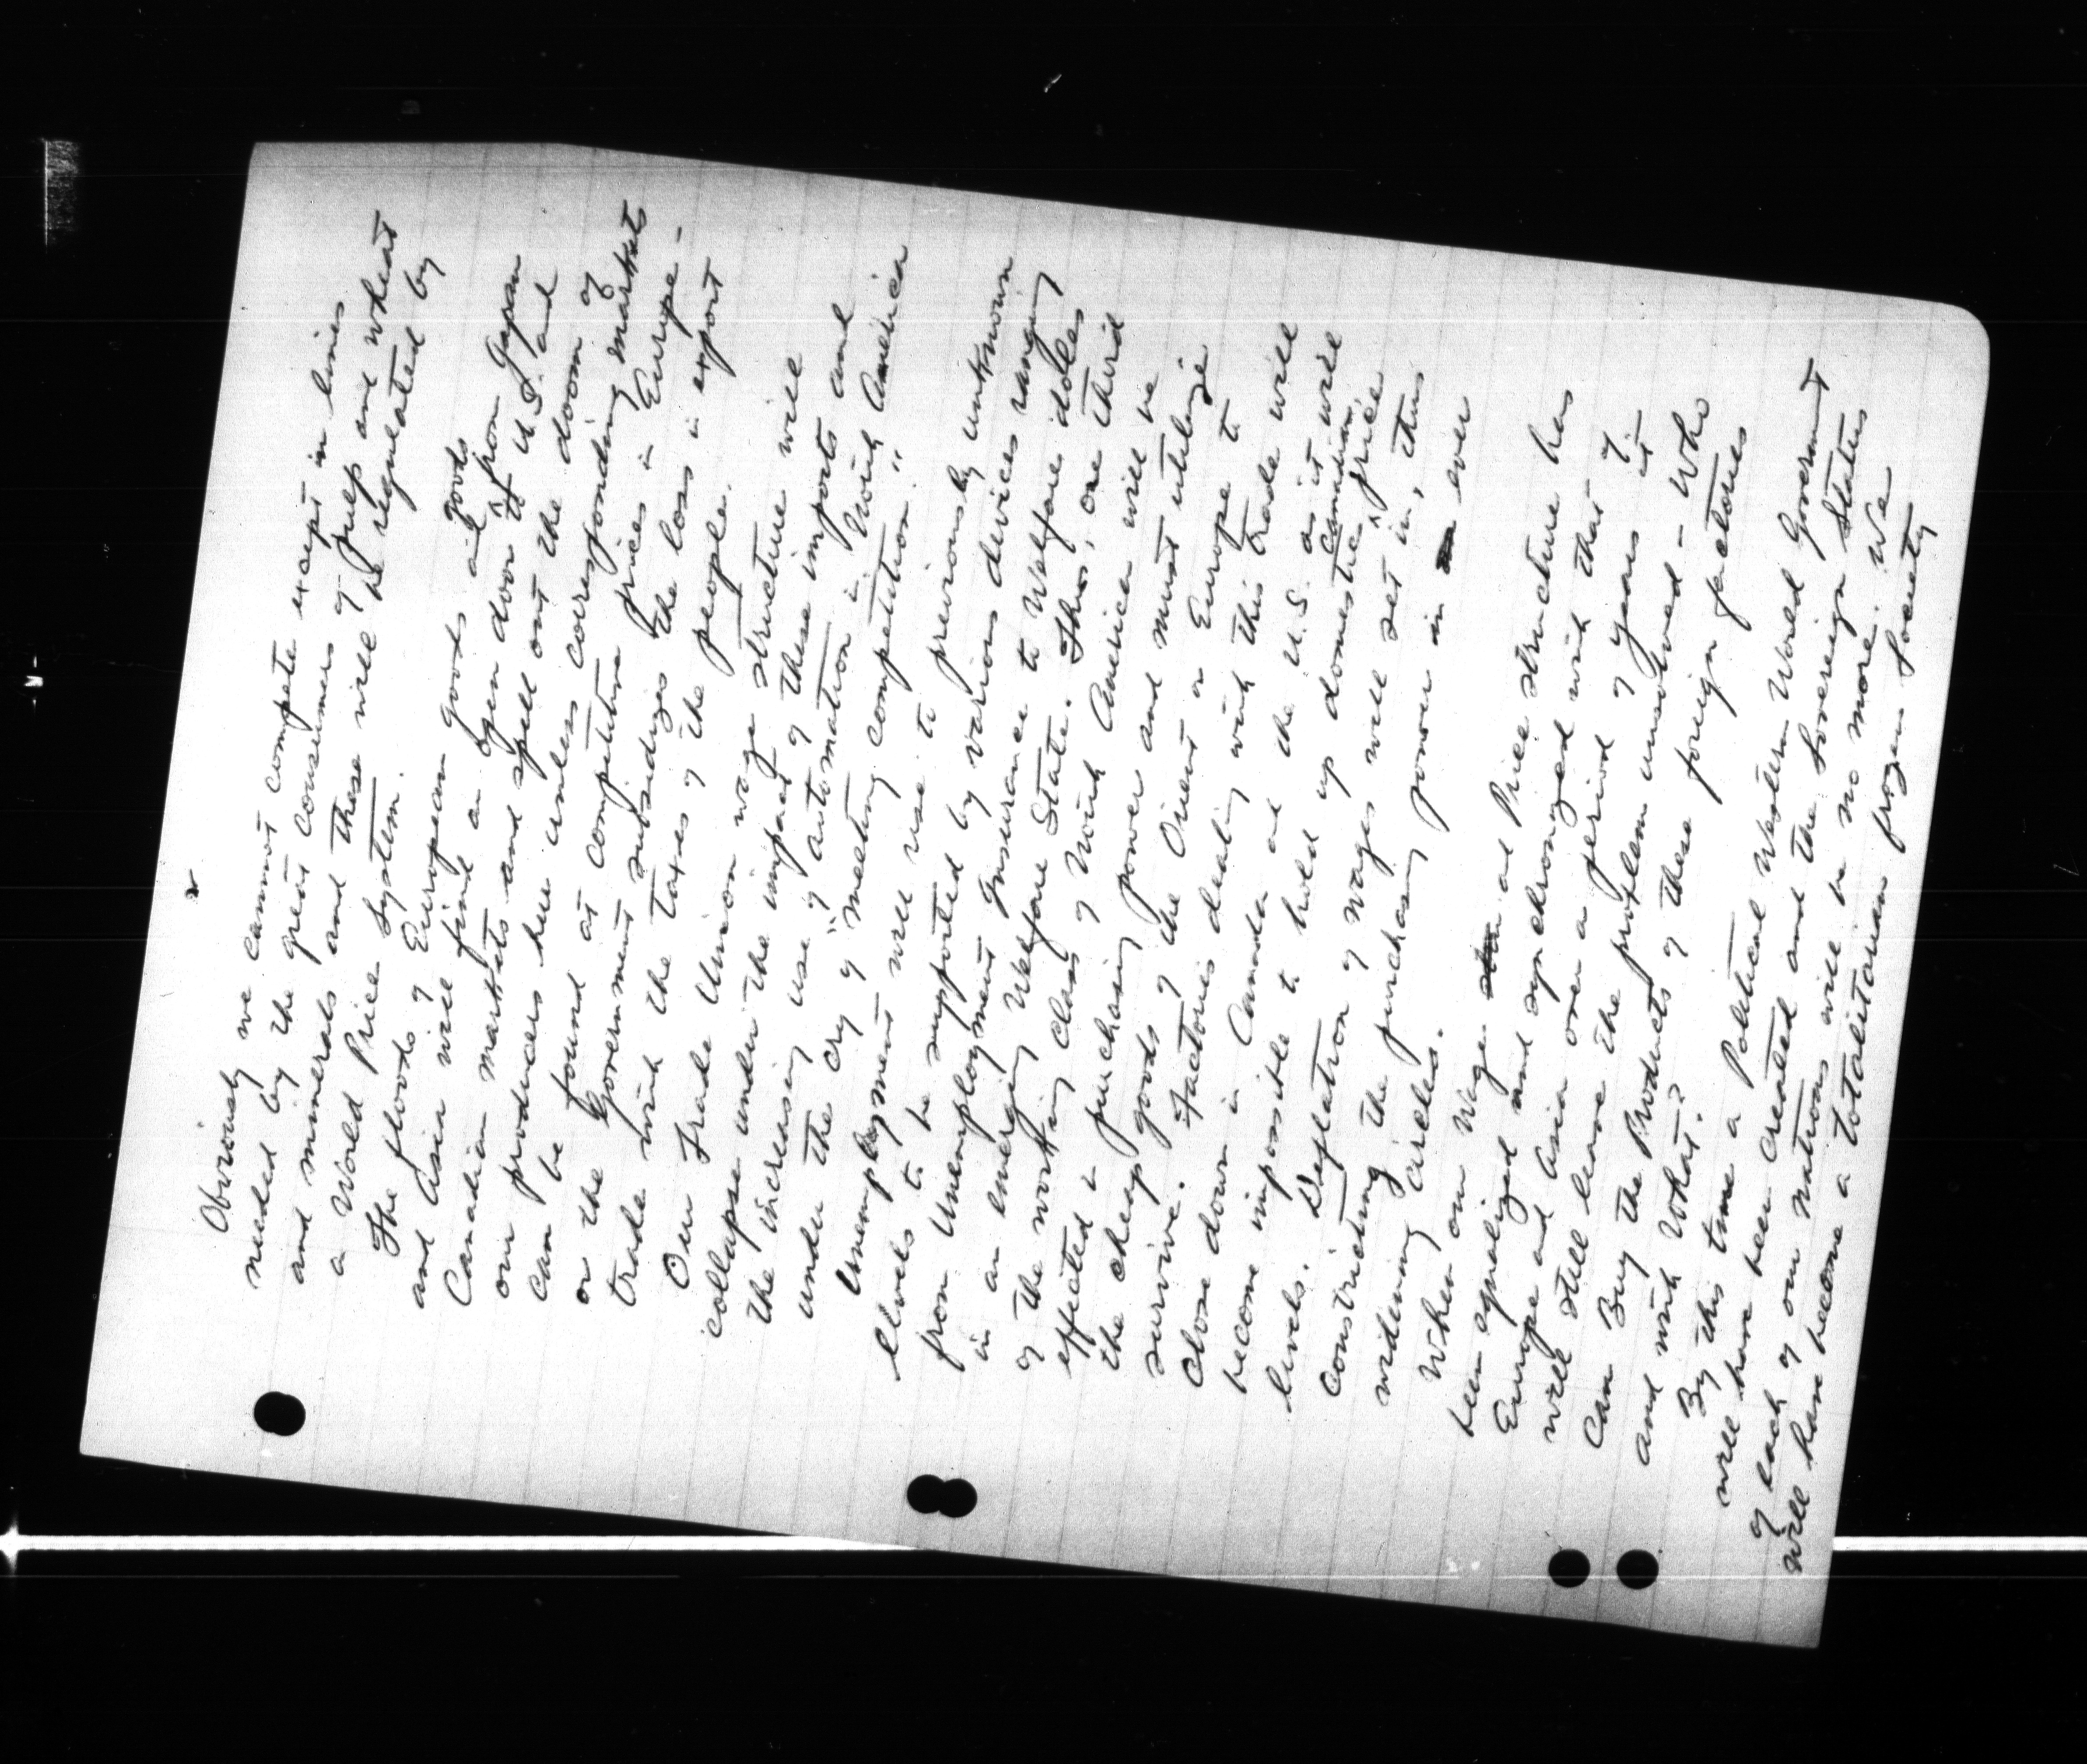 2
Obviously we cannot compete except in lines
needed by the great consumers of pulp and wheat
and minerals and these will be regulated by
a World Price System.
The floods of European goods and goods from Japan
and Asia will find an open door to U.S. and
Canadian markets and spell out the doom of
our producers here unless corresponding markets
can be found at competitive prices in Europe -
or the Government subsidizes the loss in export
trade with the taxes of the people.
Our Trade Union wage structure will
collapse under the impact of these imports and
the increasing use of automation in North America
under the cry "of meeting competition."
Unemployment will rise to previously unknown
levels to be supported by various devices ranging
from Unemployment Insurance to Welfare doles
in an emerging Welfare State. Thus, one third
of the working class of North America will be
effected in purchasing power and must utilize
the cheap goods of the Orient or Europe to
survive. Factories dealing with this trade will
close down in Canada and the U.S. as it will
become impossible to hold up domestic Canadian price
levels. Deflation of wages will set in, thus
constricting the purchasing power in ever
widening circles.
When our Wage and Price structure has
been equalized and synchronized with that of
Europe and Asia over a period of years it
will still leave the problem unsolved - Who
Can Buy the Products of these foreign factories
and with What?
By this time a Political Western World Government
will have been created and the Sovereign Status
of each of our nations will be no more. We
will have become a totalitarian frozen Society